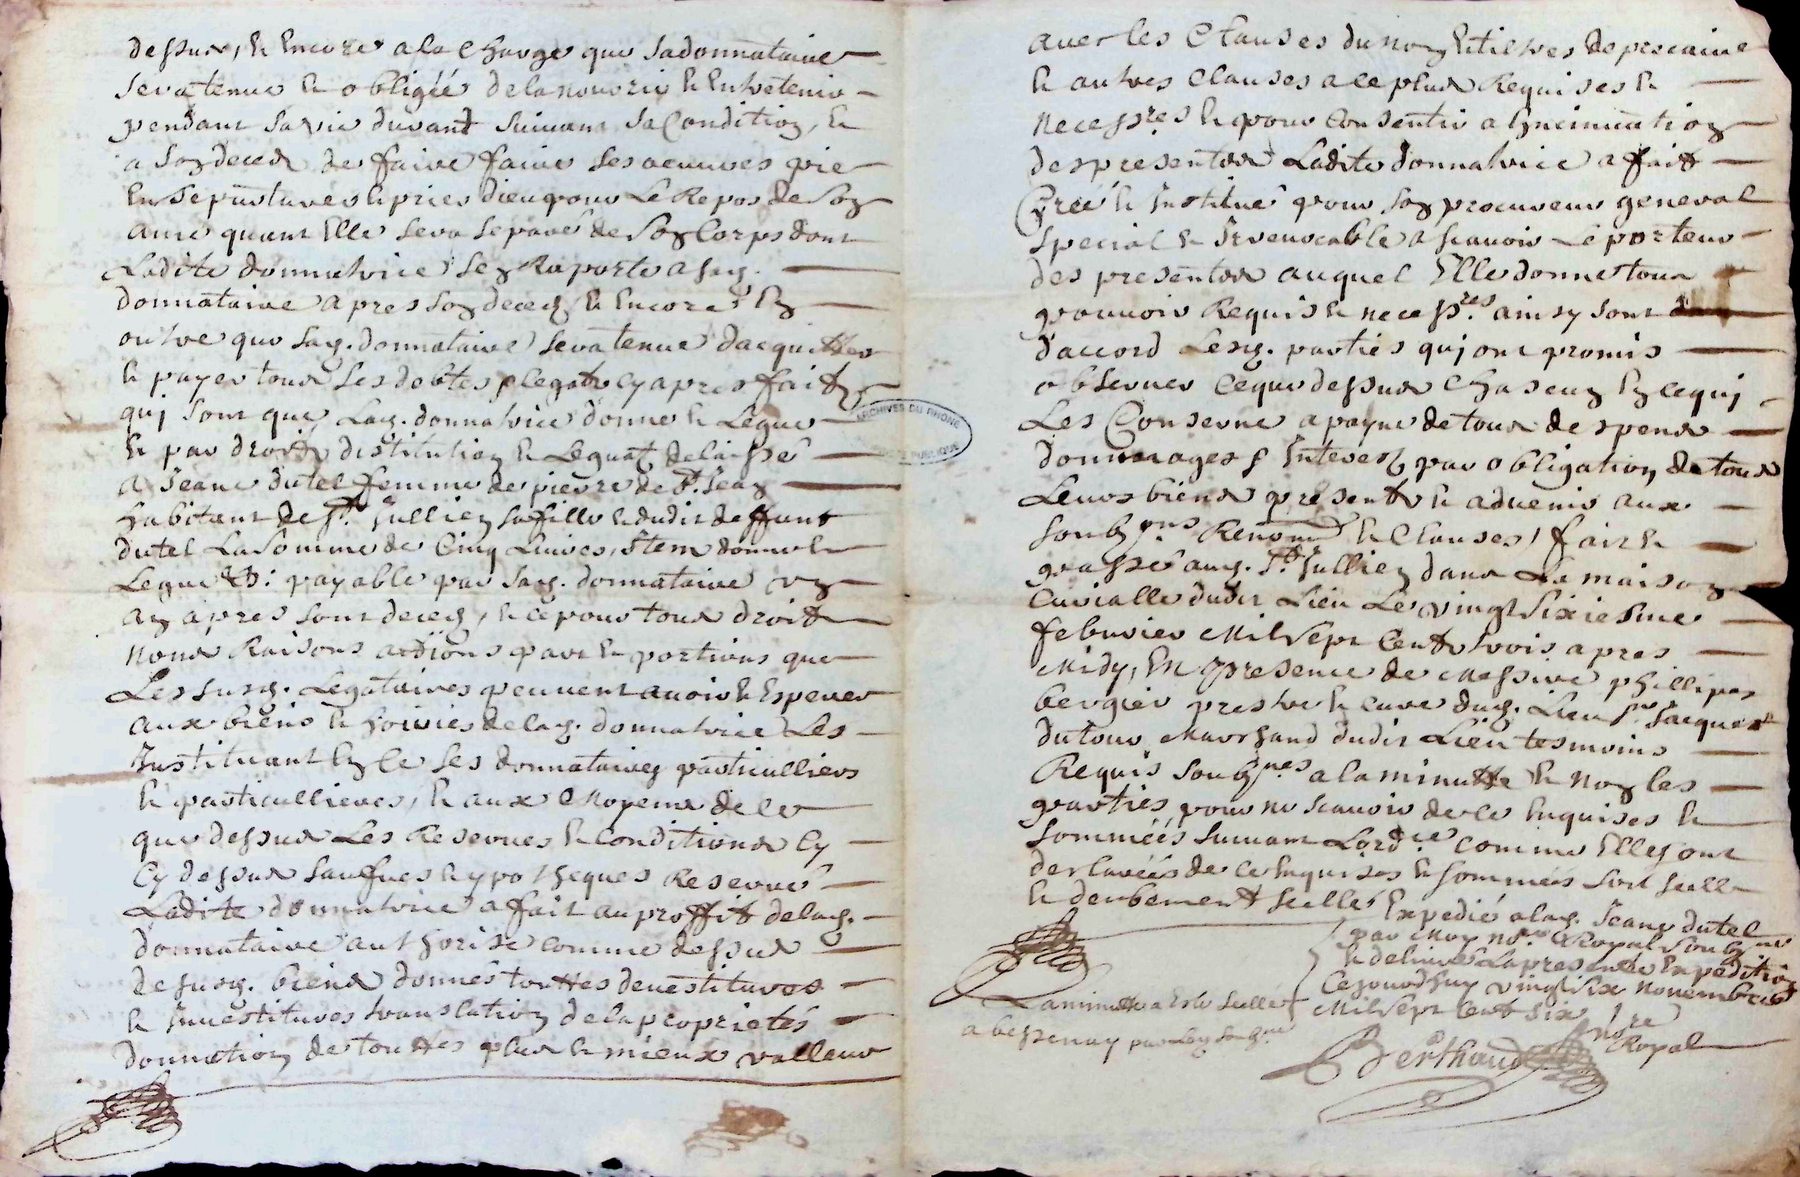 dessus, et encore a la charge que sa donnataire
sera tenue et obligée de la nourrir et entretenir
pendant sa vie durant suivant sa condition, et
a son deces de faire faire ses oeuvres pie
en sepultures et prier dieu pour Le Repos de son
ame quant Elle sera separé de son Corps dont
Ladite donnatrice s'en Raporte a sad.
donnataire apres son deces, et encores en
outre que sad. donnataire sera tenue d'acquitter
et payer tous ses debtes et legats cy apres faits
qui sont que Lad. donnatrice donne et Legue
et par droit d'istitution et Leguat delaissé
a Jeane dutel femme de pierre de St. Jean
habitant de St. Jullien sa fille et dudit deffunt
dutel La somme de Cinq Livres, Item donne et
Legue payable par sad. donnataire un
an apres sont deces, et ce pour tous droits
noms Raisons actions part et portions que
Les susd. Legataires peuvent avoir et Esperer
aux biens et hoiries de lad. donnatrice Les
Instituant en ce ses donnataires particulliers
et particullieres, et aux Moyens de ce
que dessus Les Reserves et Conditions Cy
Cy dessus sauf ses hypotheques Reservé
Ladite donnatrice a fait au proffit de lad.
donnataire authorisé comme dessus
de susd. biens donnés touttes devestitures
et Investitures translation de la proprietés
donnation de touttes plus et mieux valleur
avec les Clauses du non et tiltres de precaire
et autres Clauses a ce plus Requises et
necessres et pour Consentir a Lincinuation
des presentes Ladite donnatrice a fait
Créé et Institué pour son procureur general
special et Irrevocable a scavoir Le porteur
des presentes auquel Elle donne tous
pouvoir Requis et necessres ainsy sont
d'accord Lesd. parties qui ont promis
observer ce que dessus chascun en ce qui
Les Conserne a payne de tous despens
dommages & Interest par obligation de tous
Leurs biens presents et advenir aux
soubmons Renons et Clauses, fait et
passé aud. St. Jullien dans La maison
Curialle dudit Lieu Le vingt sixiesme
febvrier Mil sept Cents trois apres
Midy, En presence de Messire phillipes
bergier prestre et curé dud. Lieu sr. Jacques
dutour Marchand dudit Lieu tesmoins
Requis soubsnes a la minutte et non les
parties pour ne scavoir de ce Enquises et
sommées suivant Lordce comme Elles ont
declarées de ce Enquises et sommées soit scellé
et deubement scellé Expedié a lad. Jeane dutel
par Moy nore Royal soubsné
et delivré La presente Expedition
Cejourdhuy vingt six novembre
Mil sept Cent six
La minutte a Esté scellée
a bessenay par
Berthaud nore
Royal
ARCHIVES DU RHÔNE